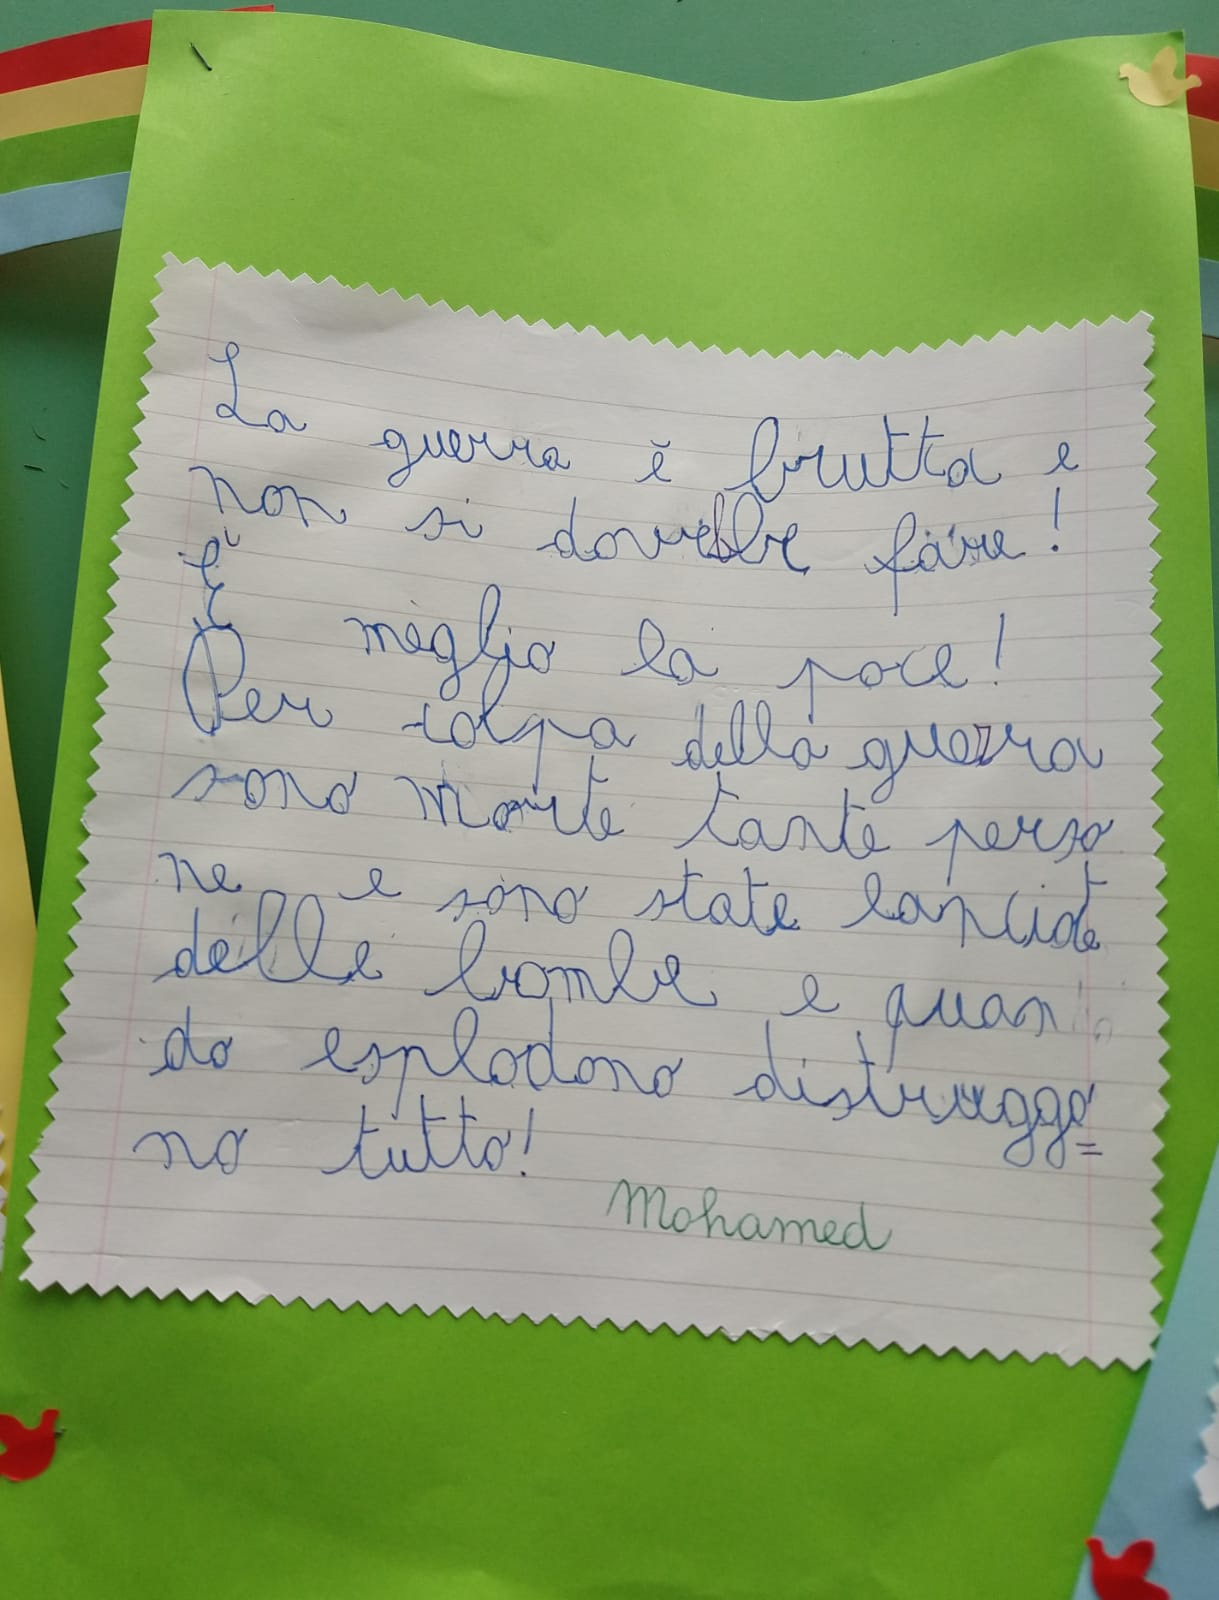 La guerra è brutta e
non si dovrebbe fare!
È meglio la pace!
Per colpa della guerra
sono morte tante perso
ne e sono state lanciate
delle bombe e quan
do esplodono distruggo=
no tutto!
Mohamed